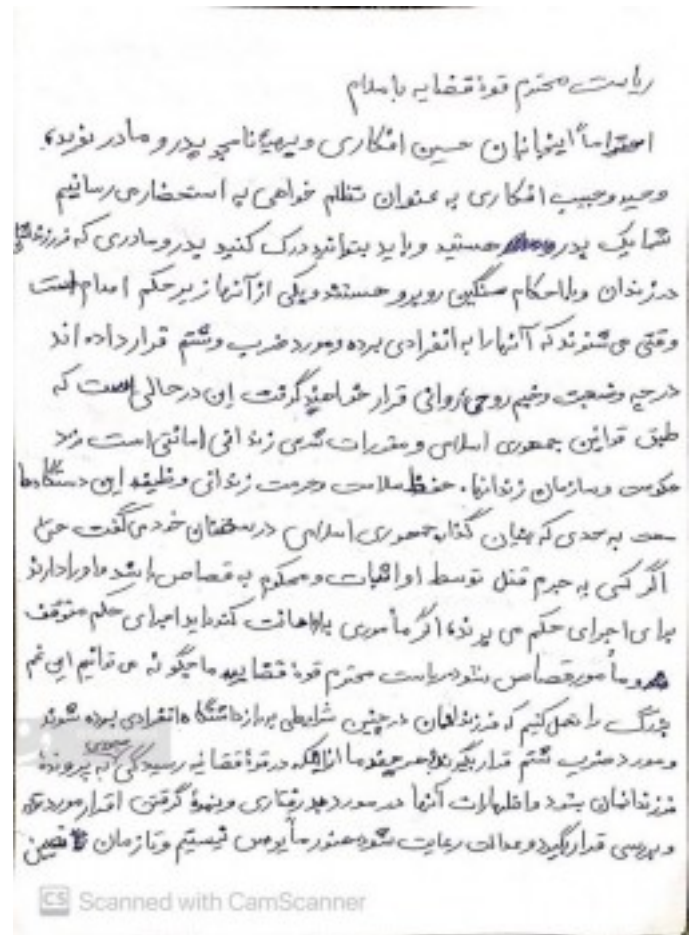 ریاست محترم قوهٔ قضاییه با سلام
احتراماً اینجانبان حسین افکاری و بهیه نامجو پدر و مادر نوید،
وحید و حبیب افکاری به عنوان تظلم خواهی به استحضار می رسانیم
شما یک پدر هستید و باید بتوانید درک کنید پدر و مادری که فرزندانش
در زندان و با احکام سنگین روبرو هستند و یکی از آنها زیر حکم اعدام است
وقتی می شنوند که آنها را به انفرادی برده و مورد ضرب و شتم قرار داده اند
در چه وضعیت وخیم روحی روانی قرار خواهند گرفت این در حالی است که
طبق قوانین جمهوری اسلامی و مقررات شرعی زندانی امانتی است نزد
حکومت و سازمان زندانها. حفظ سلامت و حرمت زندانی وظیفه این دستگاه‌ها
ست به حدی که بنیان گذار جمهوری اسلامی در سخنان خود می گفت حتی
اگر کسی به جرم قتل توسط او اثبات و محکوم به قصاص باشد و او را دارند
برای اجرای حکم می برند، اگر مأموری به او اهانت کند باید اجرای حکم متوقف
و مأمور قصاص شود ریاست محترم قوهٔ قضاییه ما چگونه می توانیم این غم
بزرگ را تحمل کنیم که فرزندانمان در چنین شرایطی به بازداشتگاه انفرادی برده شوند
و مورد ضرب شتم قرار بگیرند هر چند ما از اینکه در قوهٔ قضاییه رسیدگی به پروندهٔ
فرزندانمان بشود و اظهارات آنها در مورد بدرفتاری و نحوهٔ گرفتن اقرار مورد
و بررسی قرار بگیرد و عدالت رعایت شود هنوز مأیوس نیستیم و تا زمان
CS Scanned with CamScanner